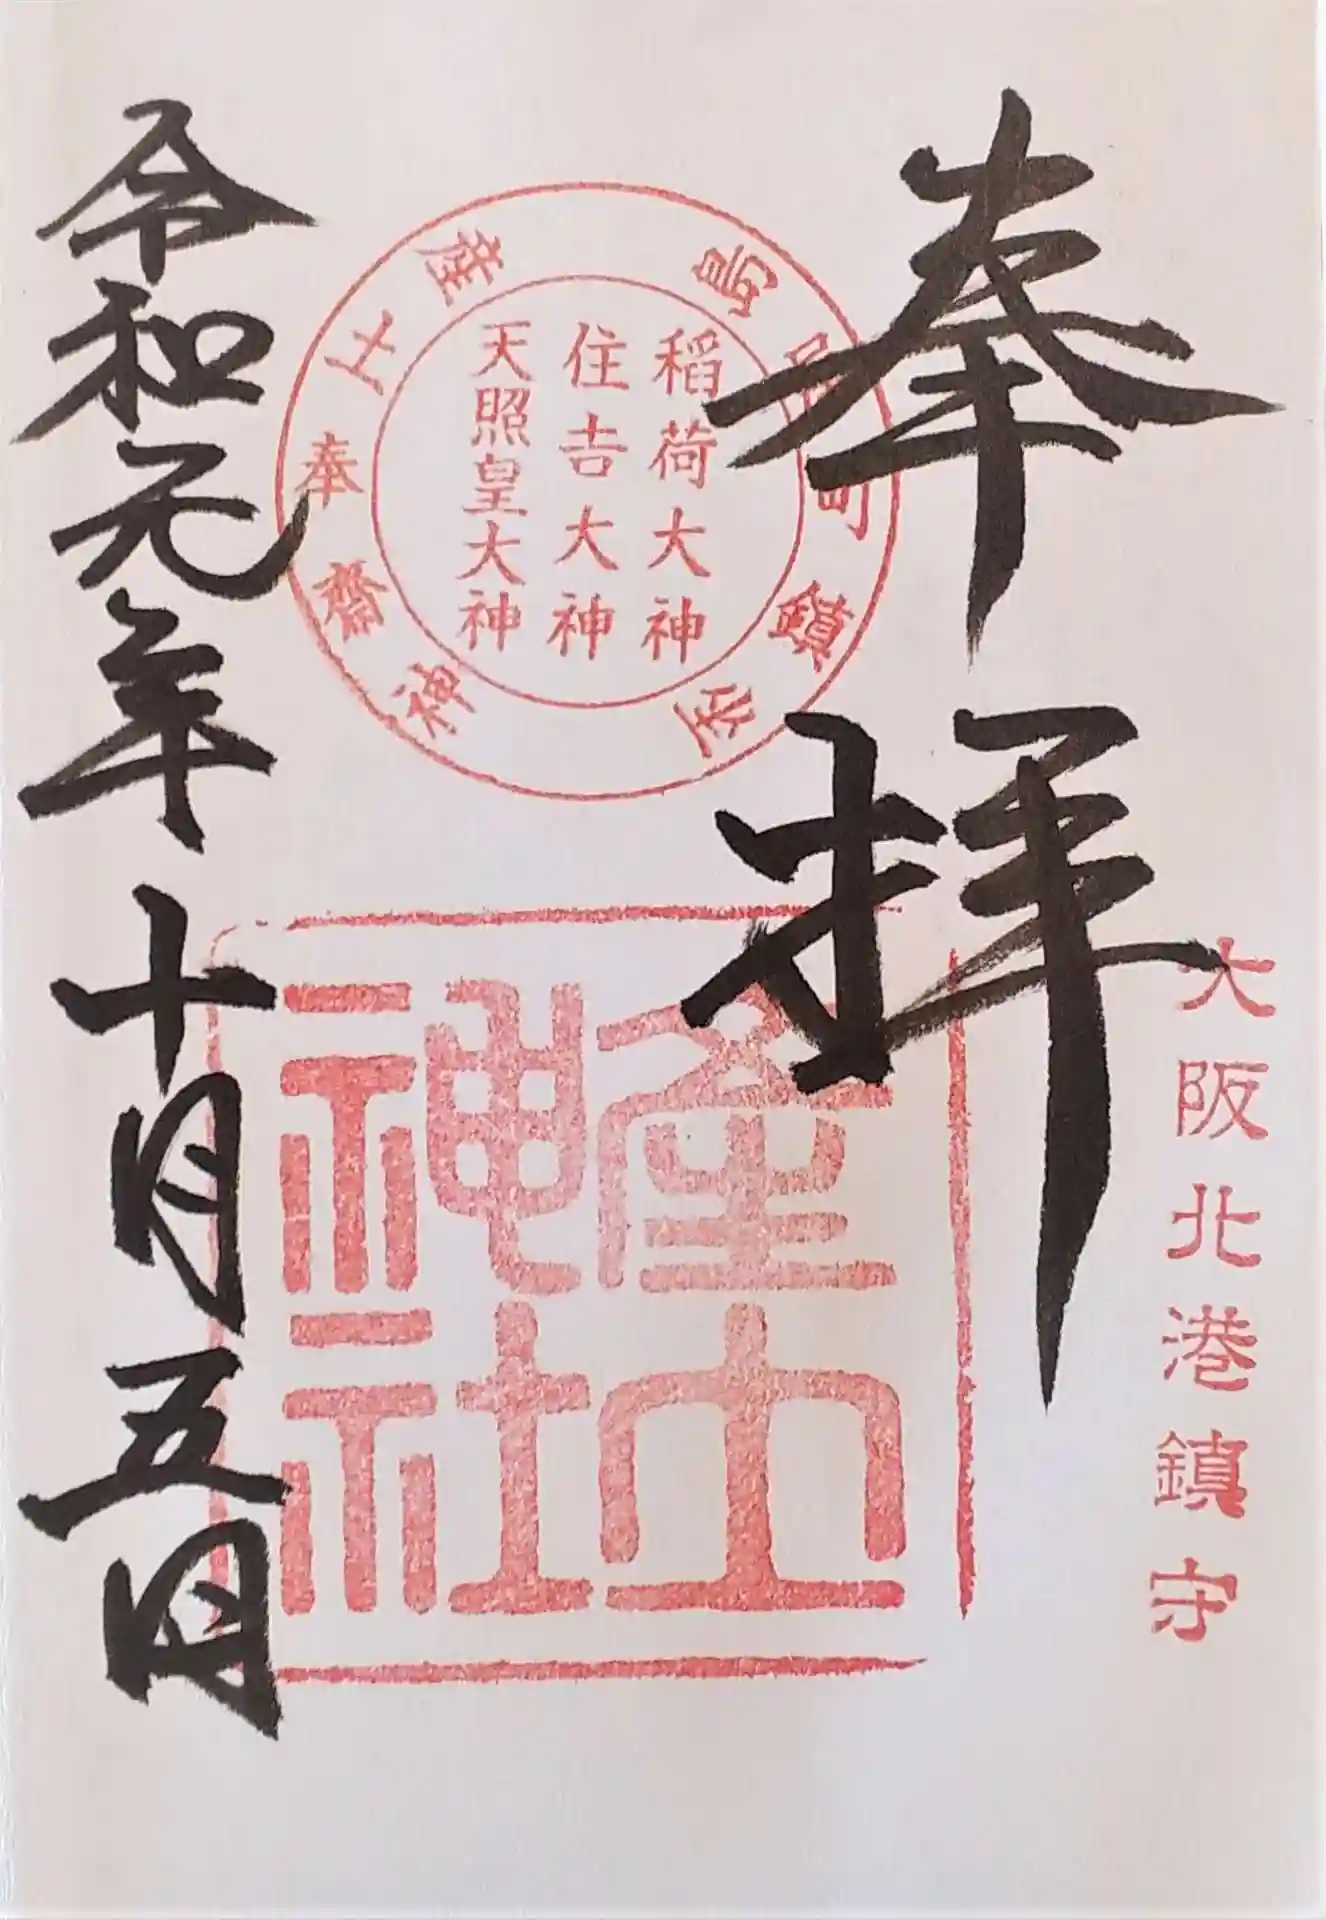 奉拝
大阪北港鎮守
島屋町鎮座
産土奉齋神
稲荷大神
住吉大神
天照皇大神
産土
神社
令和元年十月五日